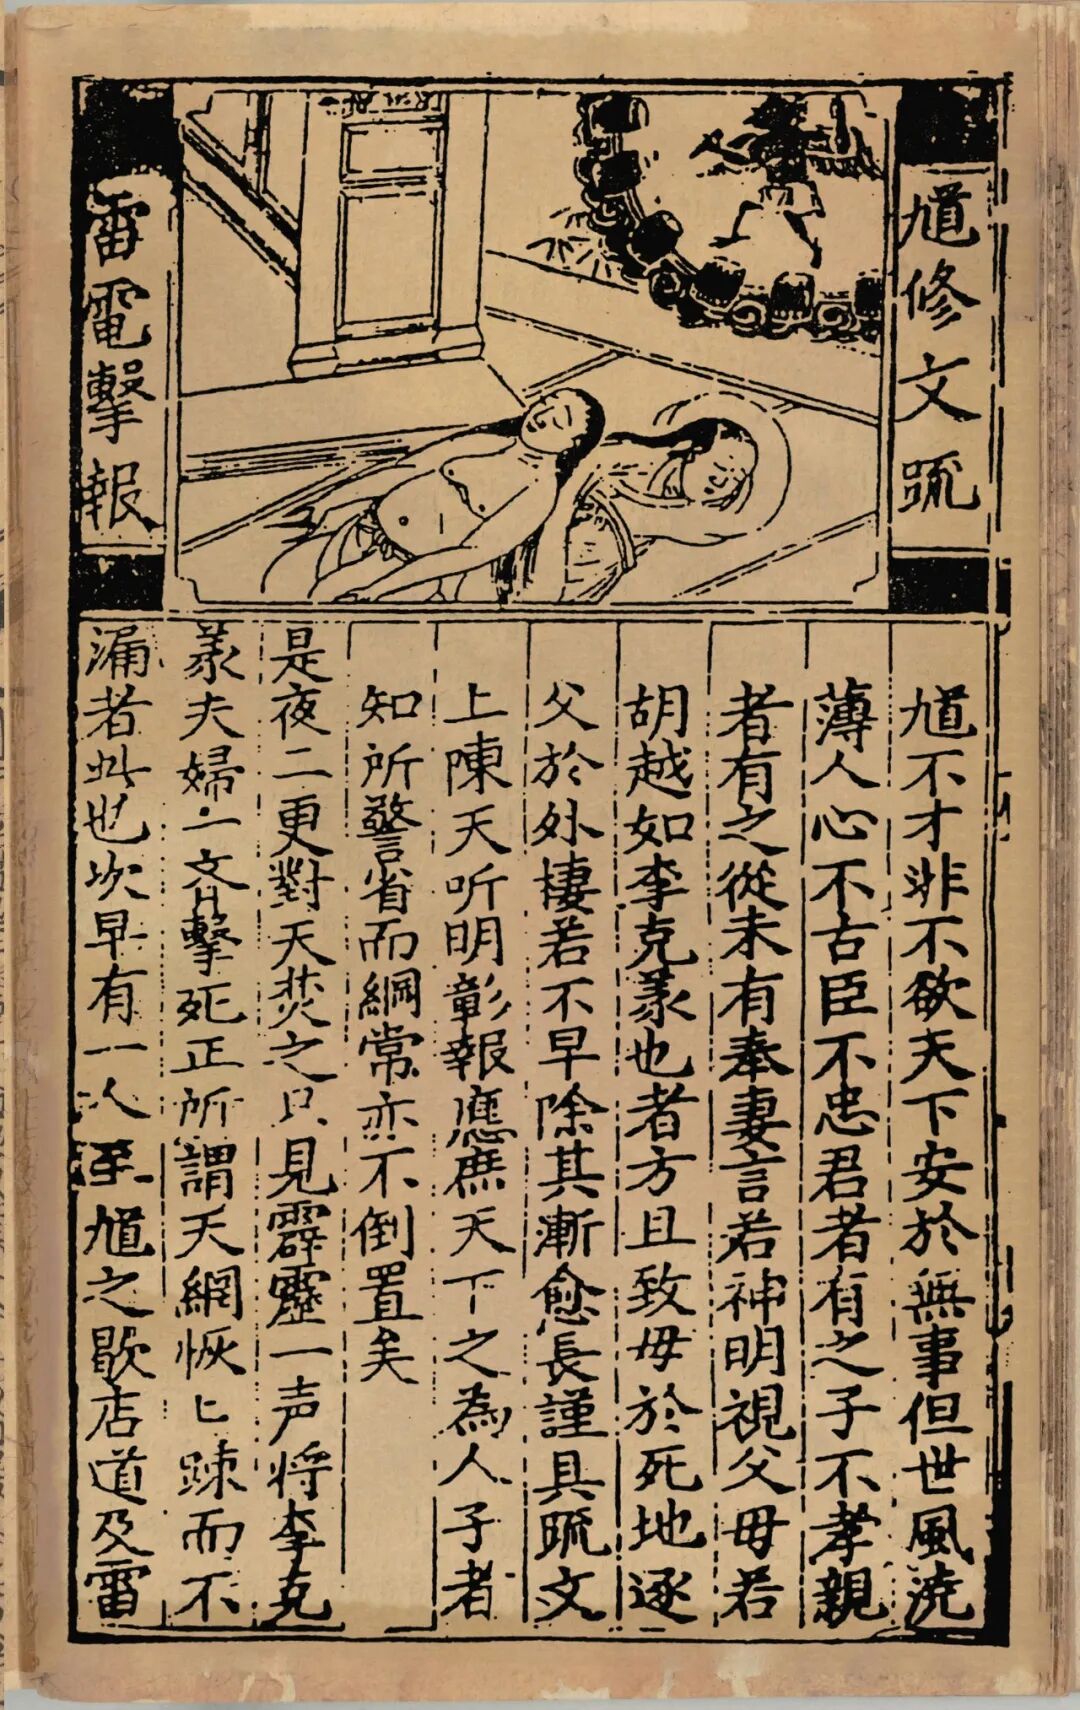 馗修文疏
雷電擊報
馗不才非不欲天下安於無事但世風澆
薄人心不古臣不忠君者有之子不孝親
者有之從未有奉妻言若神明視父母若
胡越如李克羕也者方且致母於死地逐
父於外棲若不早除其漸愈長謹具疏文
上陳天听明彰報應庶天下之為人子者
知所警省而綱常亦不倒置矣
是夜二更對天焚之只見霹靂一声將李克
羕夫婦一齐擊死正所謂天網恢匕踈而不
漏者此也次早有一人至馗之歇店道及雷